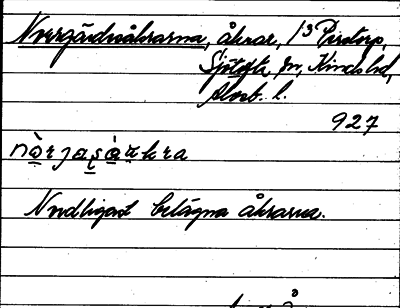 Norrgärdsåkrarna, åkrar, 1/3 Pirstorp,
Sjötofta sn, Kinds hd,
Älvsb. l.
927
Nordligast belägna åkrarna.